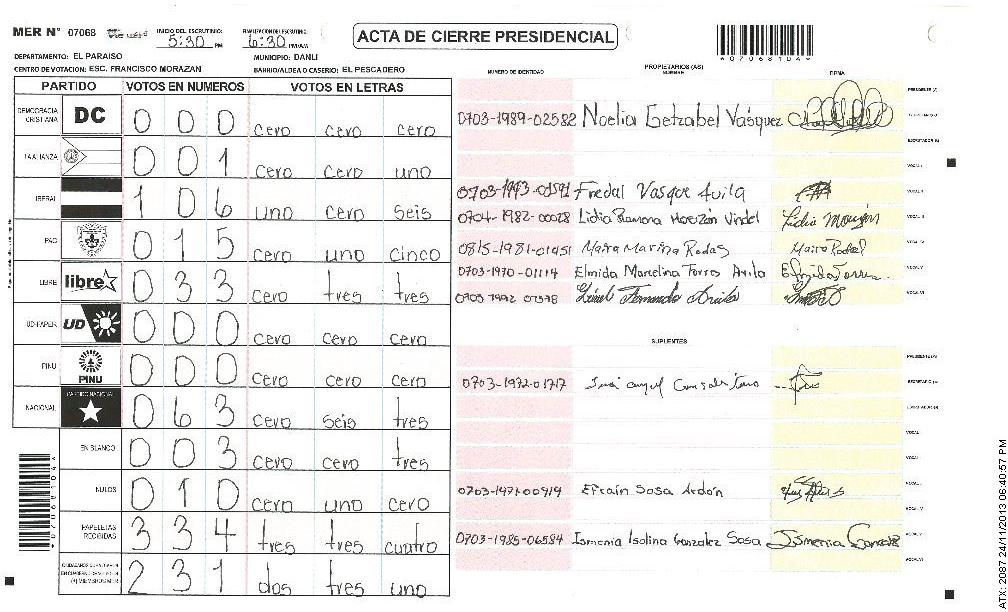 MER N° 07068
INICIO DEL ESCRUTINIO: 5:30 PM
FINALIZACION DEL ESCRUTINIO: 6:30 PM
ACTA DE CIERRE PRESIDENCIAL
*07068104*
DEPARTAMENTO: EL PARAISO
MUNICIPIO: DANLI
CENTRO DE VOTACION: ESC. FRANCISCO MORAZAN
BARRIO/ALDEA O CASERIO: EL PESCADERO
PARTIDO VOTOS EN NUMEROS VOTOS EN LETRAS
DEMOCRACIA CRISTIANA DC 0 0 0 cero cero cero
LA ALIANZA 0 0 1 cero cero uno
LIBERAL 1 0 6 uno cero seis
PAC 0 1 5 cero uno cinco
LIBRE libre 0 3 3 cero tres tres
UD-FAPER UD 0 0 0 cero cero cero
PINU PINU 0 0 0 cero cero cero
NACIONAL PARTIDO NACIONAL 0 6 3 cero seis tres
EN BLANCO 0 0 3 cero cero tres
NULOS 0 1 0 cero uno cero
PAPELETAS RECIBIDAS 3 3 4 tres tres cuatro
2 3 1 dos tres uno
*07068104*
NUMERO DE IDENTIDAD PROPIETARIOS (AS) NOMBRE FIRMA
0703-1989-02582 Noelia Getzabel Vásquez
Fredal Vasque Avila
0704-1982-00028 Lidia Ramona Morazán Vindel
0815-1981-01451 Maira Marina Rodas
0703-1970-01114 Elmida Marcelina Torres Avila
SUPLENTES
0703-1972-01717
0703-1971-00919 Efraín Sosa Ardón
0703-1985-06584 Ismenia Isolina Gonzalez Sosa
ATX: 2087 24/11/2013 06:40:57 PM